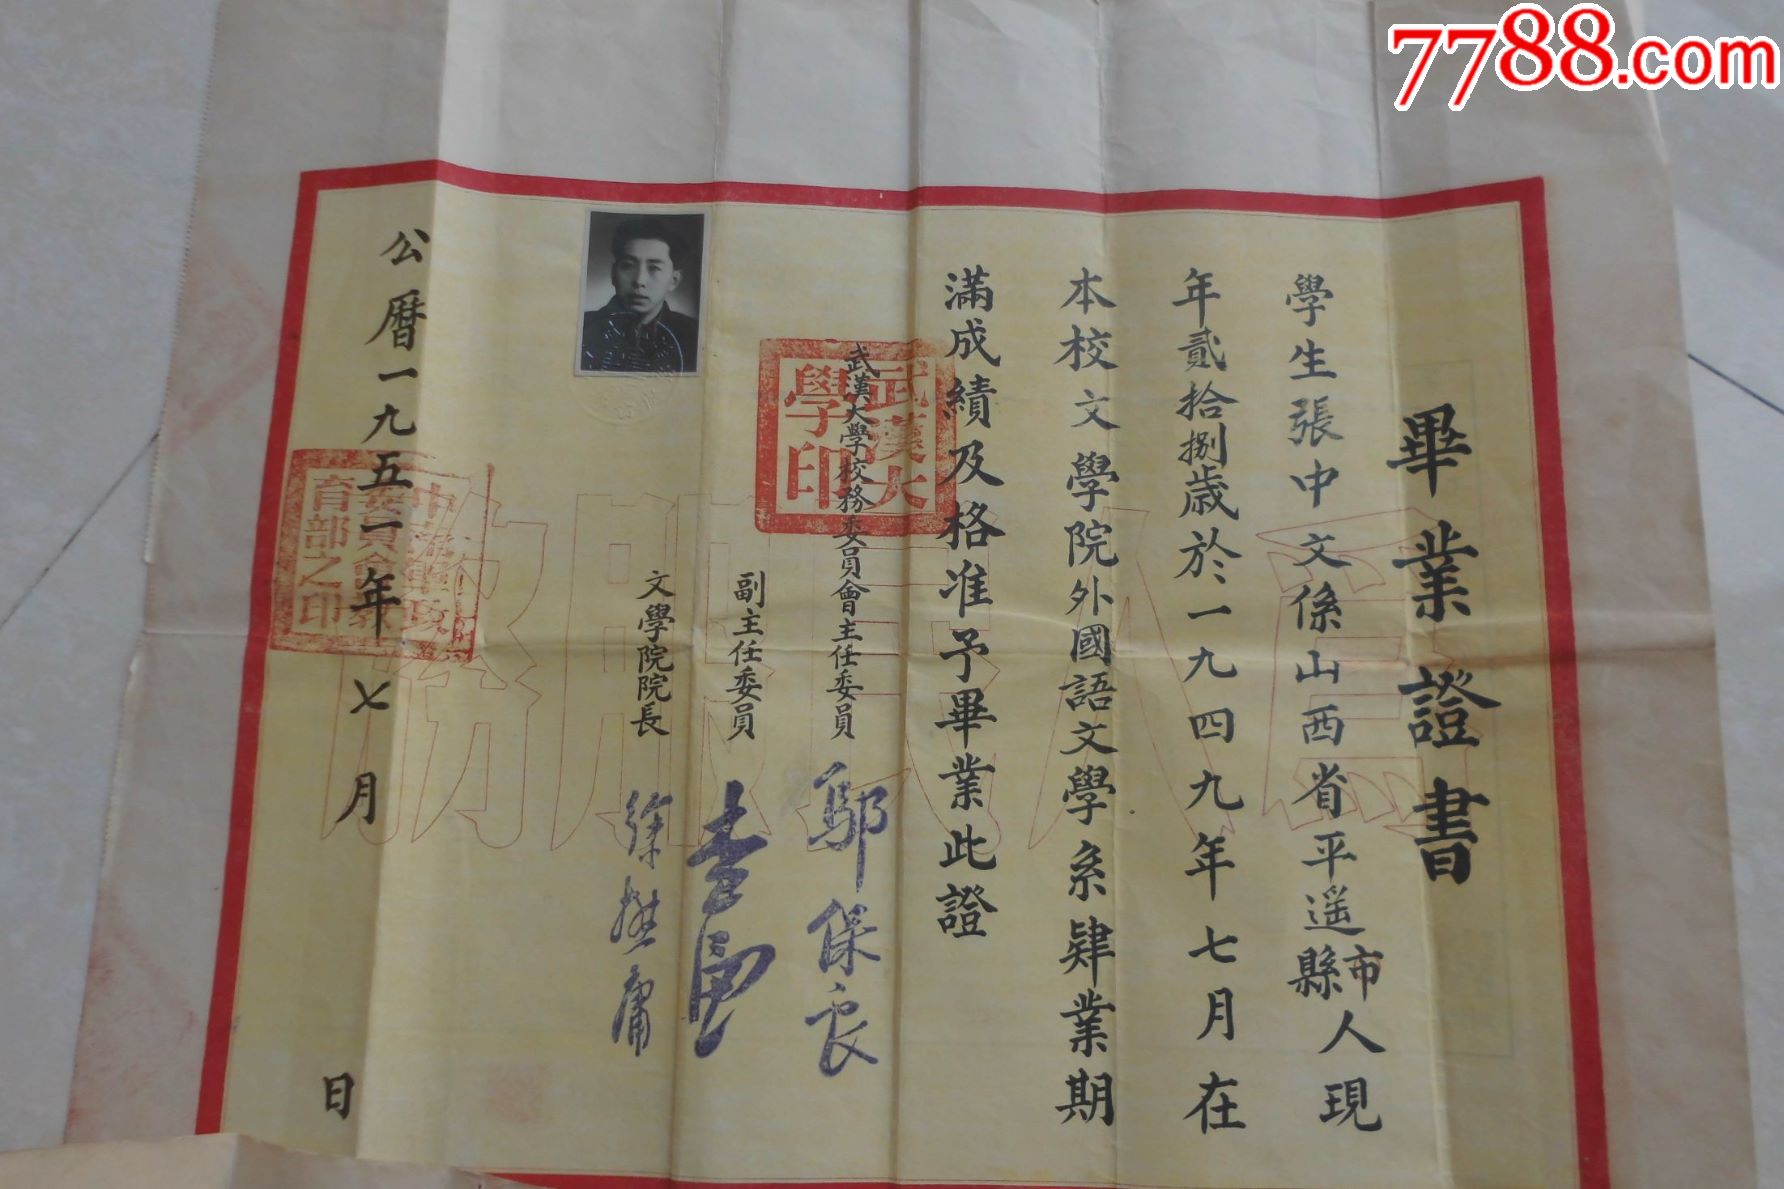 7788.com
畢業證書
學生張中文係山西省平遥縣市人現
年貳拾捌歲於一九四九年七月在
本校文學院外國語文學系肄業期
滿成績及格准予畢業此證
武漢大學校務委員會主任委員 鄔保良
副主任委員
文學院院長 徐懋庸
公曆一九五一年七月 日
武漢大學印
育部之印
為人民服務